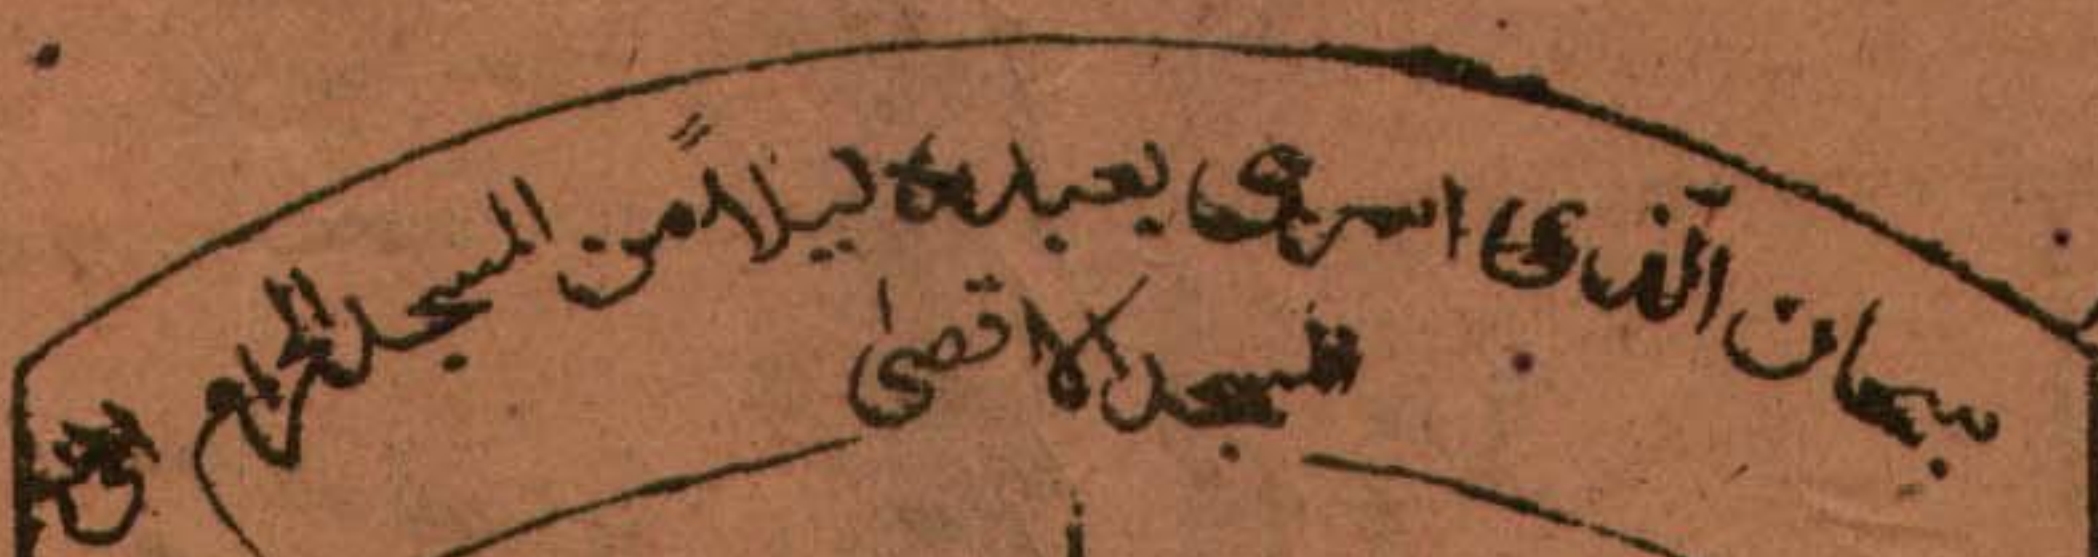 سبحان الّذى اسرى بعبده ليلاً من المسجد الحرام
المسجد الاقصىٰ